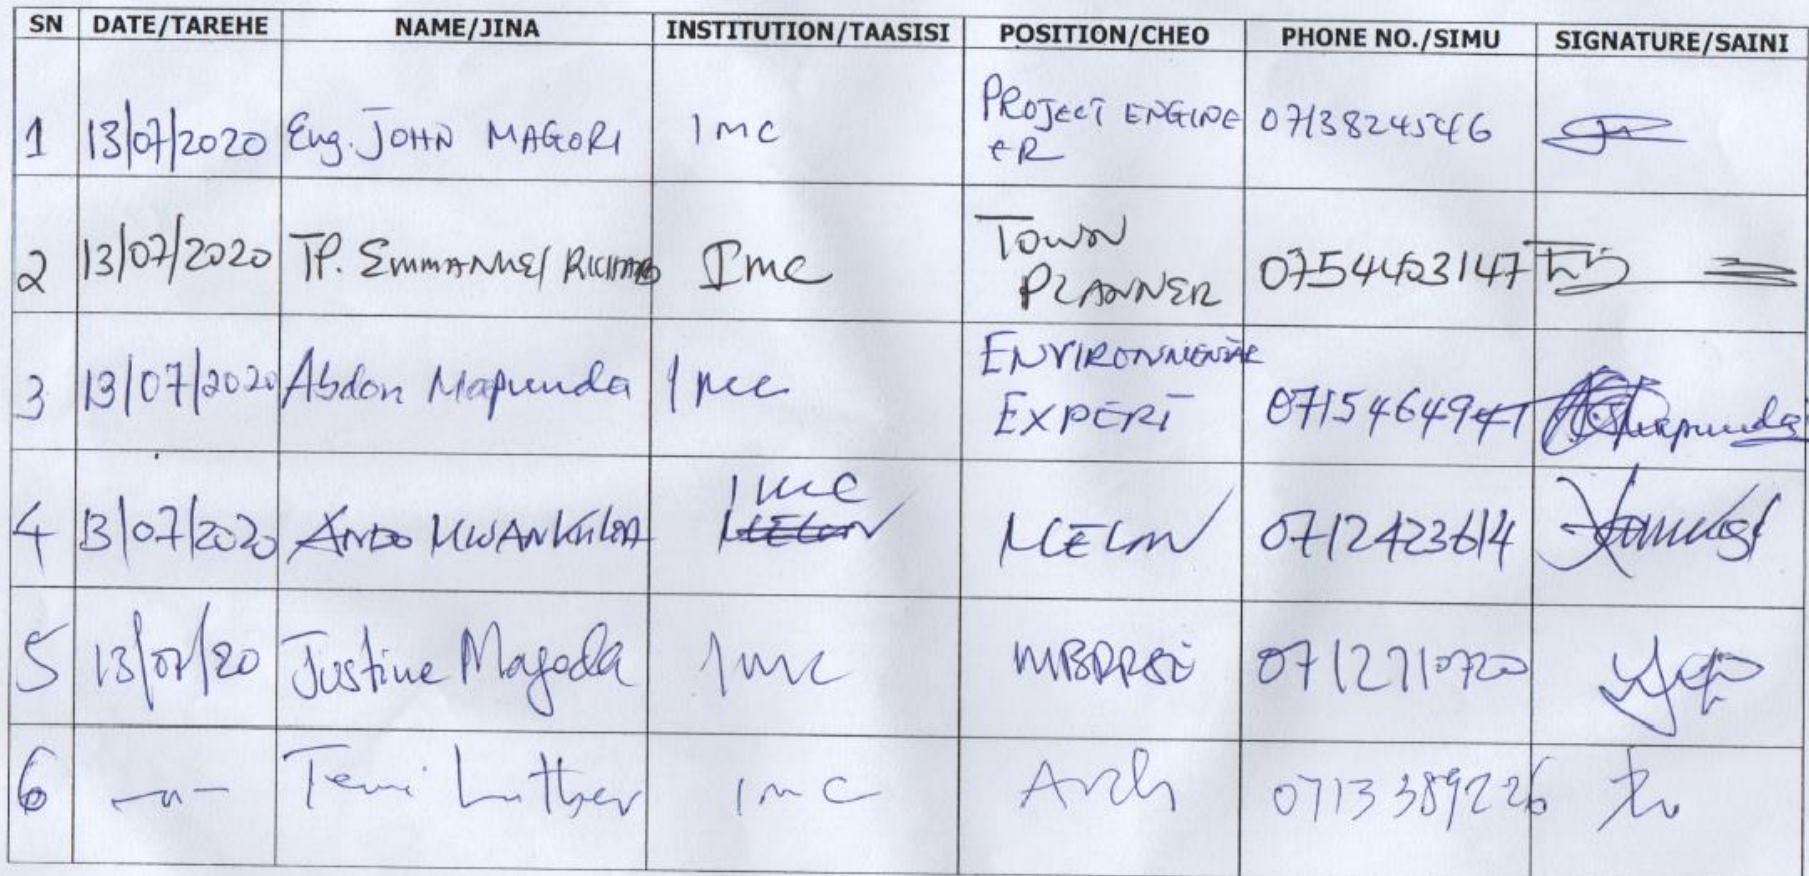 SN DATE/TAREHE NAME/JINA INSTITUTION/TAASISI POSITION/CHEO PHONE NO./SIMU SIGNATURE/SAINI
1 13/07/2020 Eng. JOHN MAGORI IMC PROJECT ENGINE 0713824546
ER
2 13/07/2020 TP. EMMANUEL RICHARD IMC TOWN
PLANNER 0754453147
3 13/07/2020 Abdon Mapunda IMC ENVIRONMENTAL
EXPERT 0715464947 Mapunda
IMC
4 13/07/2020 ANDO 0712423614
5 13/07/20 Justine IMC 0712710720
6 -"- Luther IMC Arch 0713389226